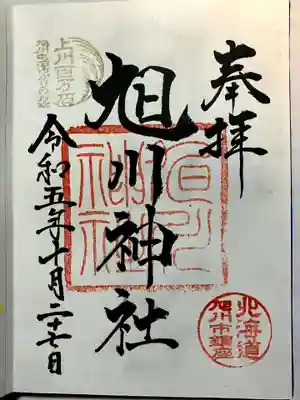 奉拝
旭川神社
令和五年十月二十七日
上川百万石
旭川神社
北海道
旭川市鎮座